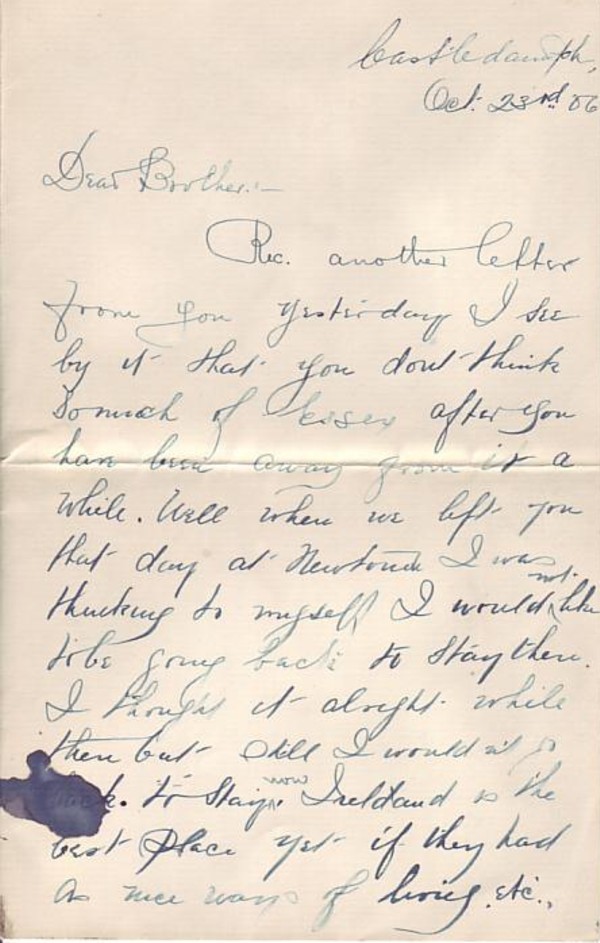 Castledamph,
Oct. 23rd 06
Dear Brother:—
Rec. another letter
from you yesterday I see
by it that you dont think
so much of Essex after you
have been away from it a
while. Well when we left you
that day at Newtown I was
thinking to myself I would not like
to be going back to stay there.
I thought it alright while
there but still I would not go
back. to stay now. Ireland is the
best place yet if they had
as nice ways of living, etc.,